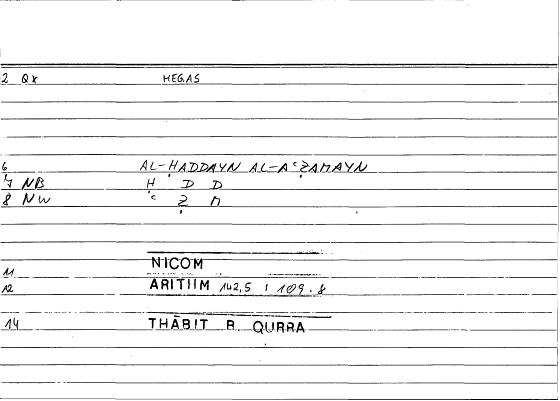 2 QX MEGAS
6 AL-ḤADDAYN AL-AʿẒAMAYN
7 NB Ḥ D D
8 NW ʿ Ẓ M
NICOM
11
12 ARITIIM 142,5 ; 109.8
14 THĀBIT B. QURRA